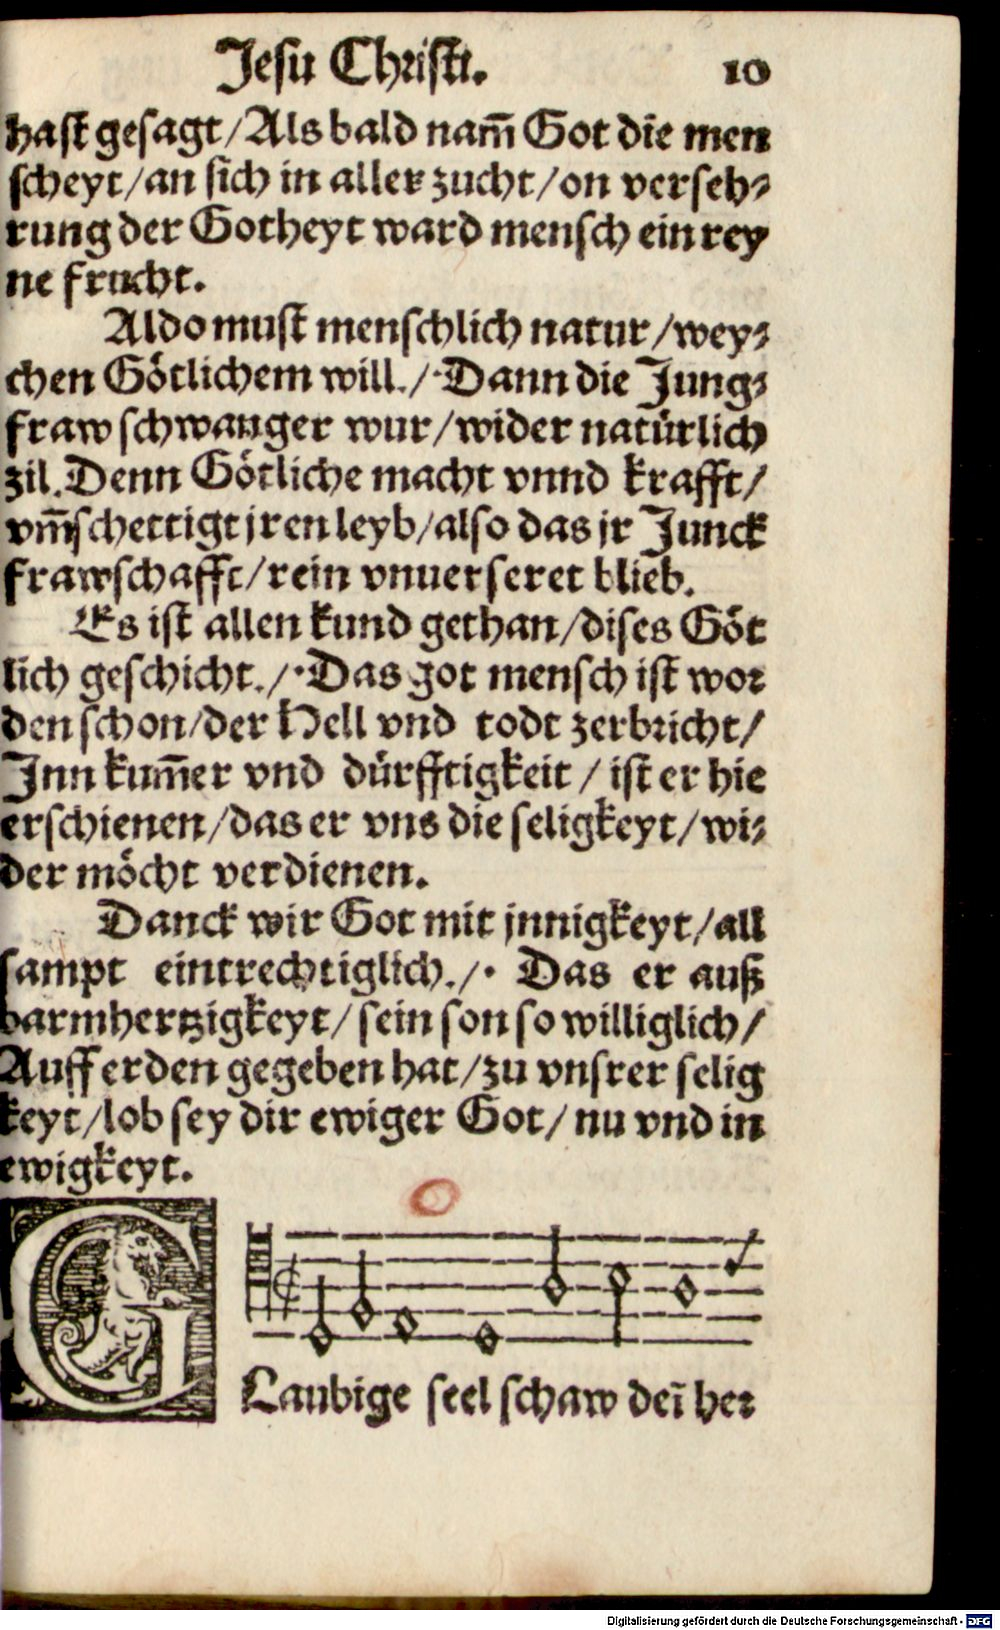 Jesu Christi. 10
hast gesagt/Als bald nam̄ Got die men
scheyt/an sich in aller zucht/on verseh⸗
rung der Gotheyt ward mensch ein rey
ne frucht.
Aldo must menschlich natur/wey⸗
chen Götlichem will./·Dann die Jung⸗
fraw schwanger wur/wider natürlich
zil. Denn Götliche macht vnnd krafft/
vm̄schettigt jren leyb/also das jr Junck
frawschafft/rein vnuerseret blieb.
Es ist allen kund gethan/dises Göt
lich geschicht./·Das got mensch ist wor
den schon/der Hell vnd todt zerbricht/
Inn kum̄er vnd dürfftigkeit/ist er hie
erschienen/das er vns die seligkeyt/wi⸗
der möcht verdienen.
Danck wir Got mit jnnigkeyt/all
sampt eintrechtiglich./· Das er auß
barmhertzigkeyt/sein son so williglich/
Auff erden gegeben hat/zu vnsrer selig
keyt/lob sey dir ewiger Got/nu vnd in
ewigkeyt.
GLaubige seel schaw dei̅ her
Digitalisierung gefördert durch die Deutsche Forschungsgemeinschaft - DFG